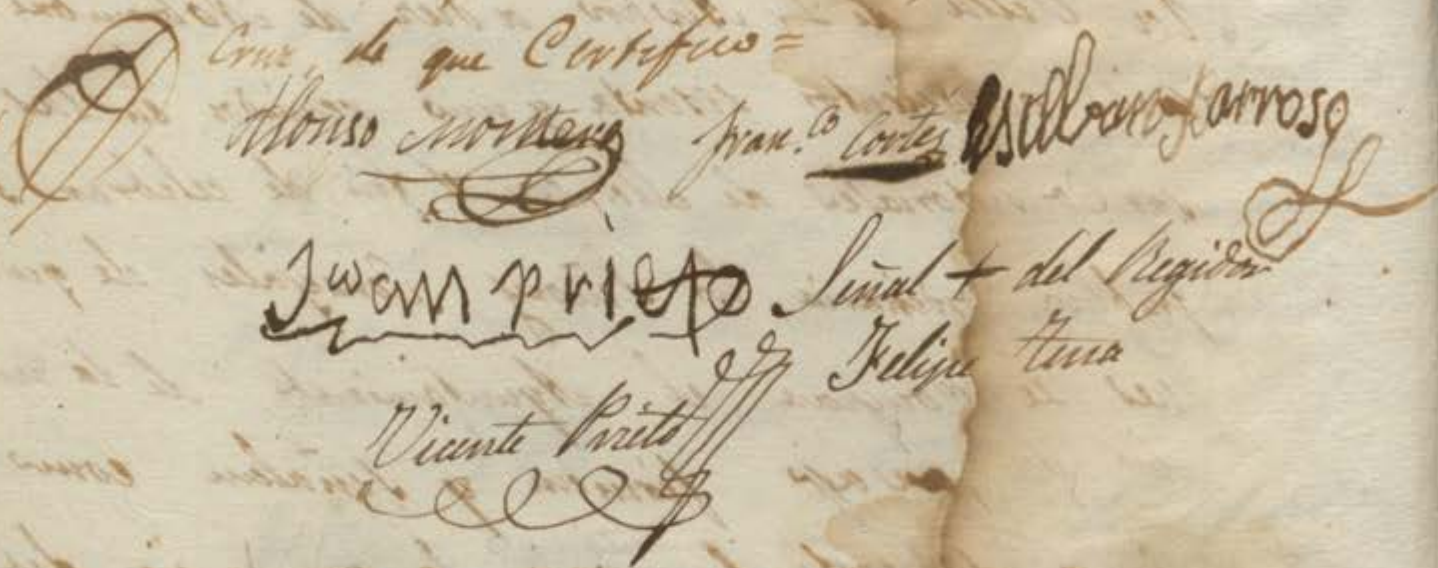 Cruz, de que Certifico =
Alonso Montero Fran.co Cortes Esteban Barroso
Juan prieto Señal + del Regidor
Felipe Tena
Vicente Prieto